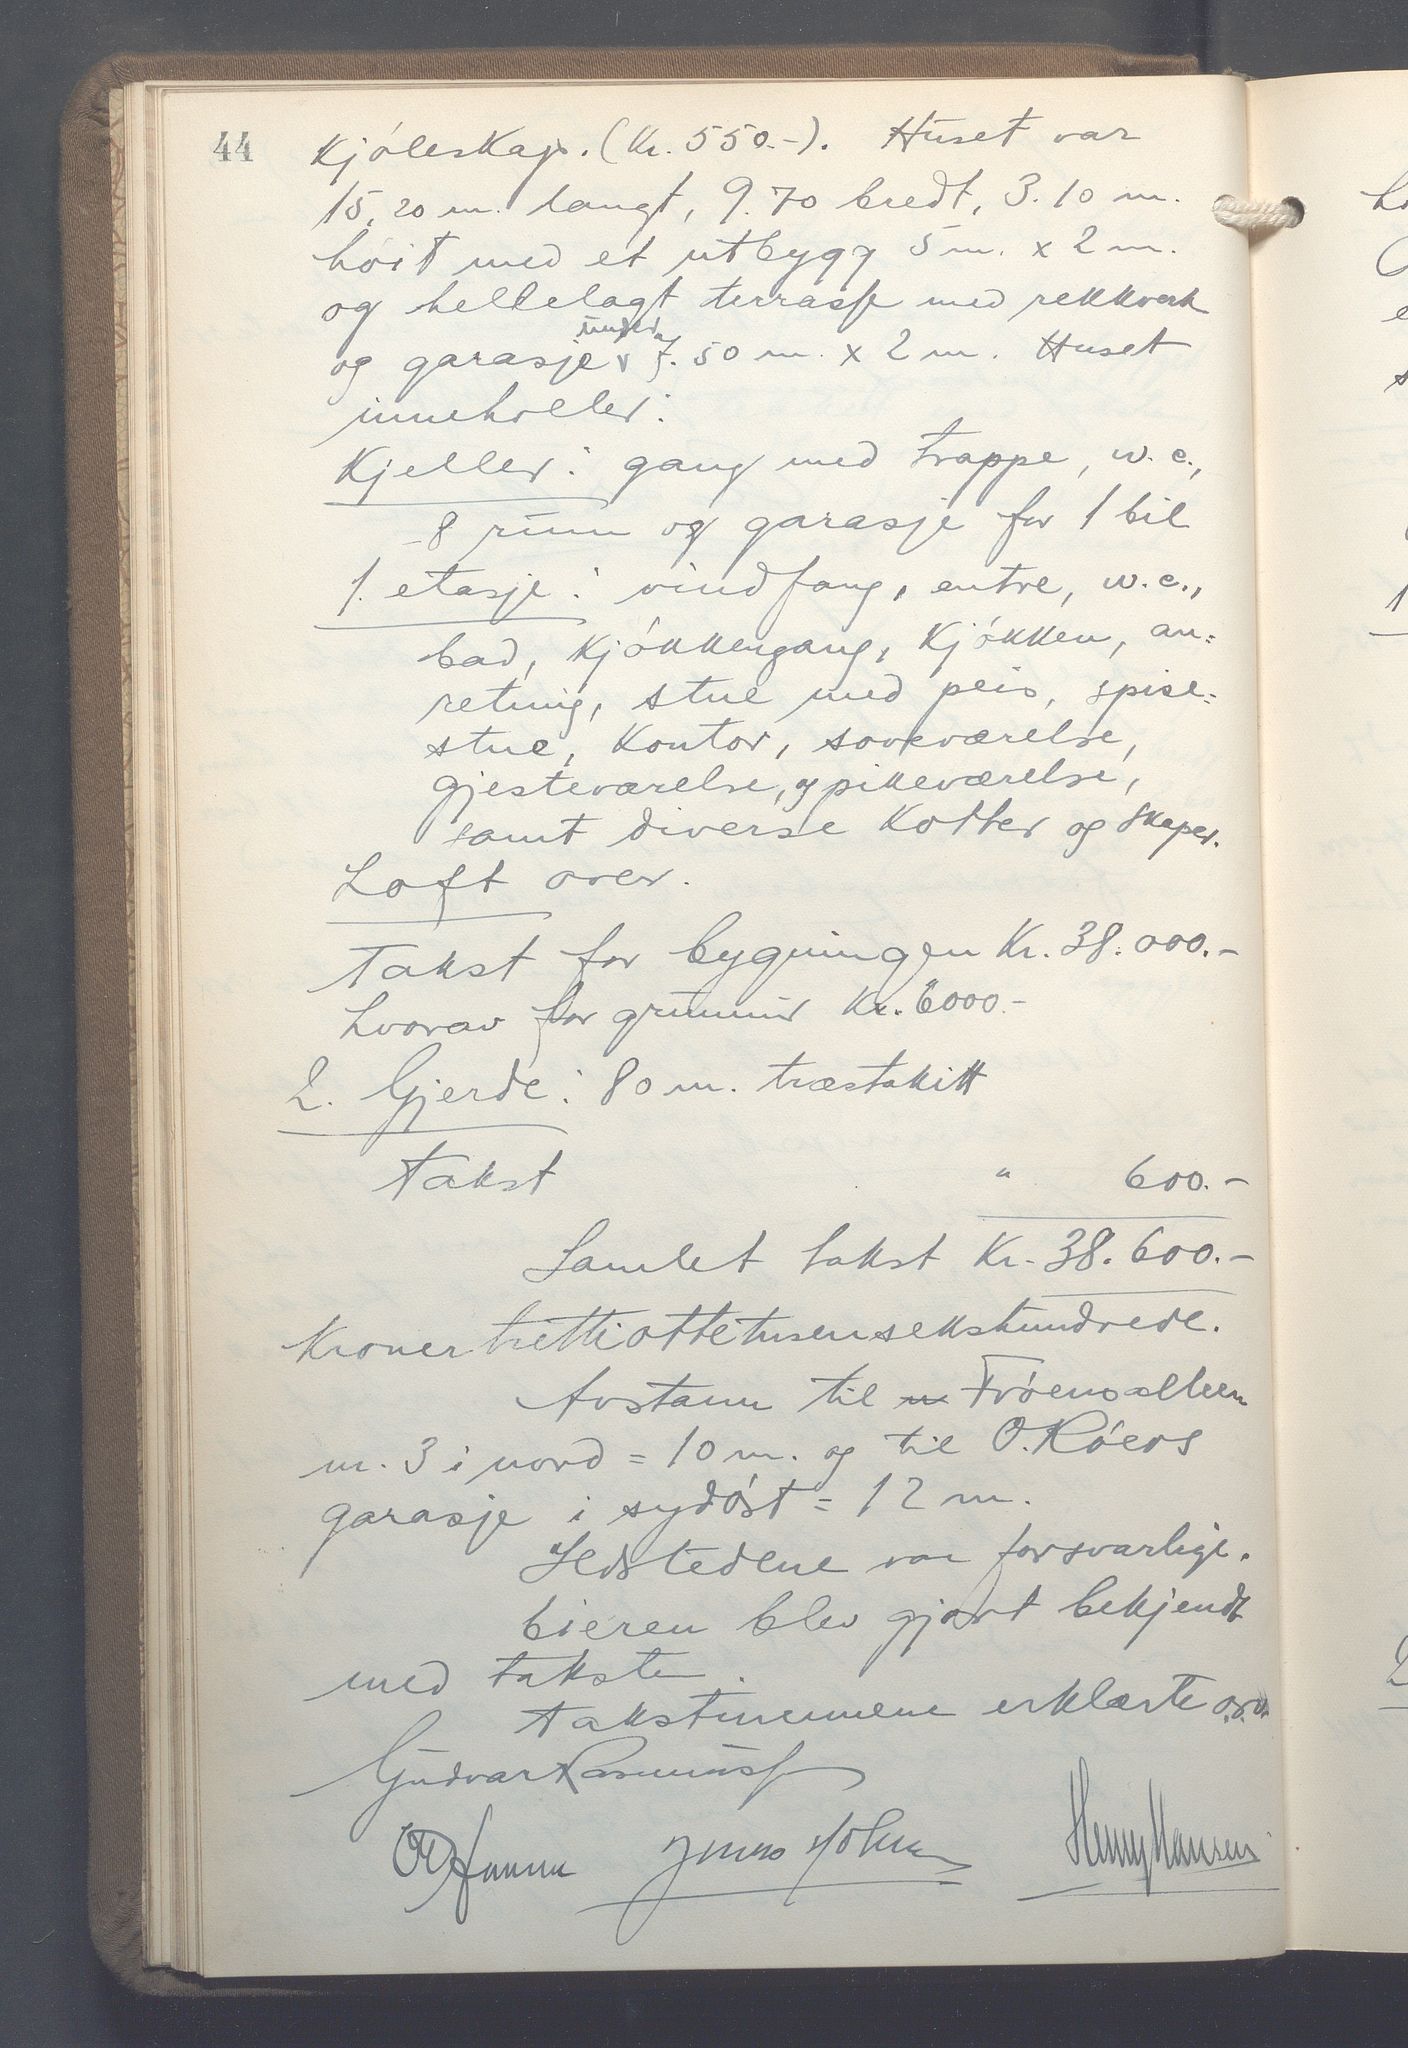 44
Kjóleskap. (Kr. 550.-). Huset var
15,20 m. langt, 9.70 bredt, 3.10 m.
hóit med et utbygg 5 m. x 2 m.
og hellelagt terrasse med rekkverk
og garasje under 7.50 m. x 2 m. Huset
inneholder:
Kjeller: gang med trappe, w.c.,
8 rum og garasje for 1 bil
1. etasje: vindfang, entre, w.c.,
bad, kjókkengang, kjókken, an=
retning, stue med peis, spise=
stue, kontor, soveværelse,
gjesteværelse, og pikeværelse,
samt diverse kotter og skaper.
Loft over.
Takst for bygningen Kr. 38.000.-
hvorav for grunmur Kr. 6000.-
2. Gjerde: 80 m. træstakitt
Takst " 600.-
Samlet takst Kr. 38.600.-
Kroner trettiottetusensekshundrede.
Avstann til Fróensalleen
nr. 3 i nord = 10 m. og til O. Róers
garasje i sydóst = 12 m.
Ildstedene var forsvarlige.
Eieren blev gjort bekjendt
med taksten.
Takstmennene erklærte o.s.v.
Gudvar Rasmussen
Jens Holm
Henry Hansen